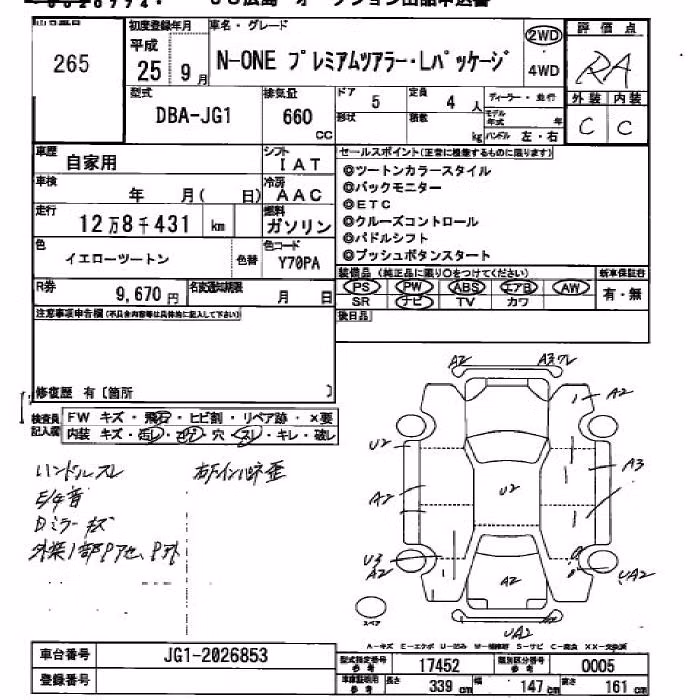 265
初度登録年月
平成
25 9月
車名・グレード
N-ONE プレミアムツアラー・Lパッケージ
2WD
4WD
評価点
RA
外装 内装
C C
型式
DBA-JG1
排気量
660
CC
ドア 5
定員 4 人
ディーラー・並行
形状
積載 kg
モデル年式 年
ハンドル 左・右
車歴
自家用
シフト
IAT
セールスポイント(正常に機能するものに限ります)
◎ツートンカラースタイル
◎バックモニター
◎ETC
◎クルーズコントロール
◎パドルシフト
◎プッシュボタンスタート
車検
年 月( 日)
冷房
AAC
走行
12万8千431 km
燃料
ガソリン
色
イエローツートン
色替
色コード
Y70PA
装備品(純正品に限り○をつけてください)
新車保証書
PS PW ABS エアB AW
SR ナビ TV カワ
有・無
R券
9,670円
名変通知期限
月 日
後日品
注意事項申告欄(不具合内容等は具体的に記入して下さい)
修復歴 有〔箇所 〕
検査員記入欄
FW キズ・飛石・ヒビ割・リペア跡・×要
内装 キズ・汚レ・コゲ・穴・スレ・キレ・破レ
ハンドルスレ
A2
A3ワレ
A2
U2
A3
A2
U2
U3
A2
A2
UA2
UA2
スペア
A-キズ E-エクボ U-凹ミ W-補修跡 S-サビ C-腐食 XX-交換済
車台番号
JG1-2026853
登録番号
型式指定番号
参考
17452
類別区分番号
参考
0005
車庫証明用
参考
長さ 339 cm
幅 147 cm
高さ 161 cm